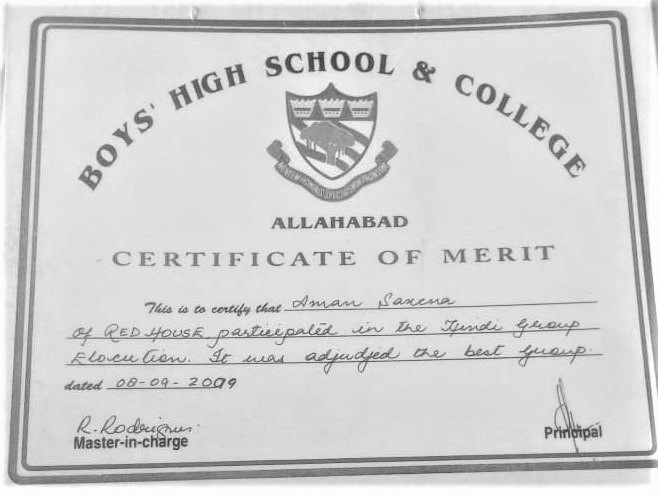 BOYS' HIGH SCHOOL & COLLEGE
ALLAHABAD
CERTIFICATE OF MERIT
This is to certify that Aman Saxena
of RED HOUSE participated in the Hindi Group
Elocution. It was adjudjed the best group.
dated 08-09-2009
R. Rodrigues.
Master-in-charge
Principal